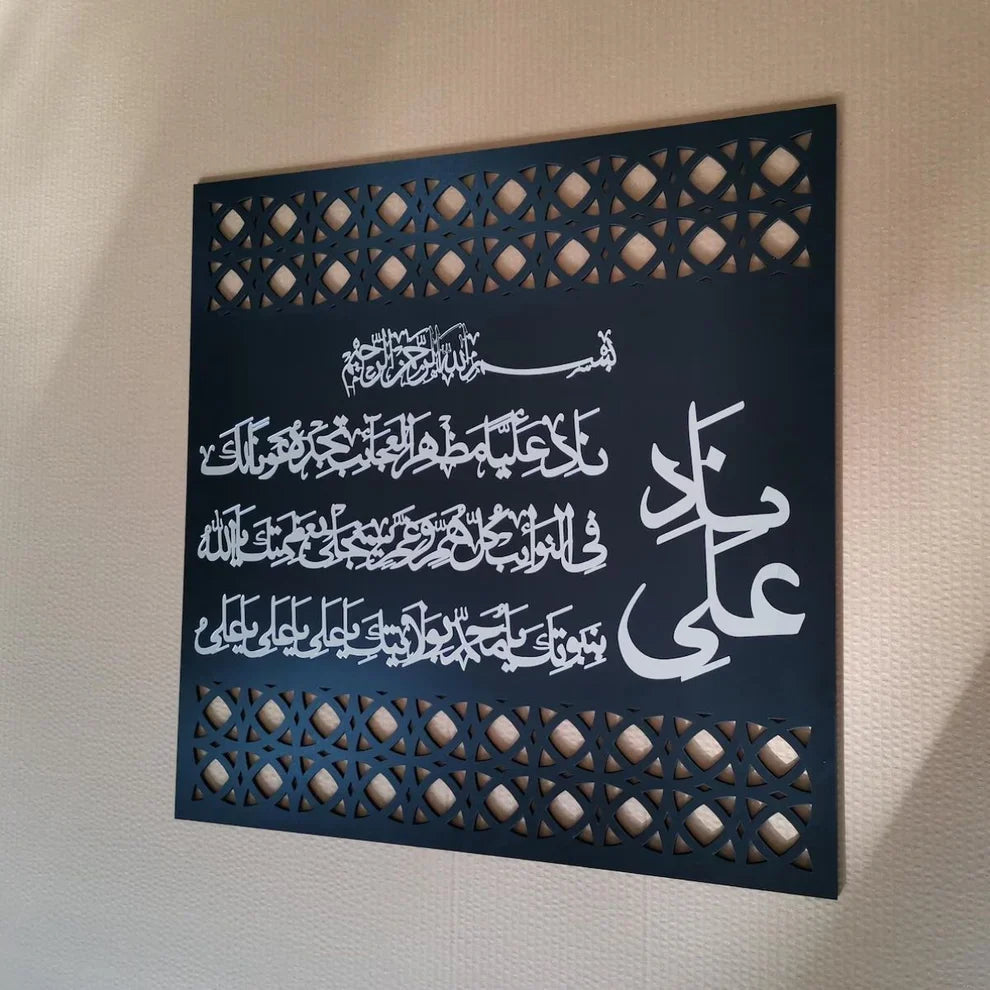 بِسْمِ اللهِ الرَّحْمٰنِ الرَّحِيْمِ
نَادِ عَلِيًّا مَظْهَرَ الْعَجَائِبِ تَجِدْهُ عَوْنًا لَكَ
فِي النَّوَائِبِ كُلُّ هَمٍّ وَغَمٍّ سَيَنْجَلِي بِعَظَمَتِكَ يَا اللهُ
بِنُبُوَّتِكَ يَا مُحَمَّدُ بِوَلَايَتِكَ يَا عَلِي يَا عَلِي يَا عَلِي
نَادِ
عَلِي